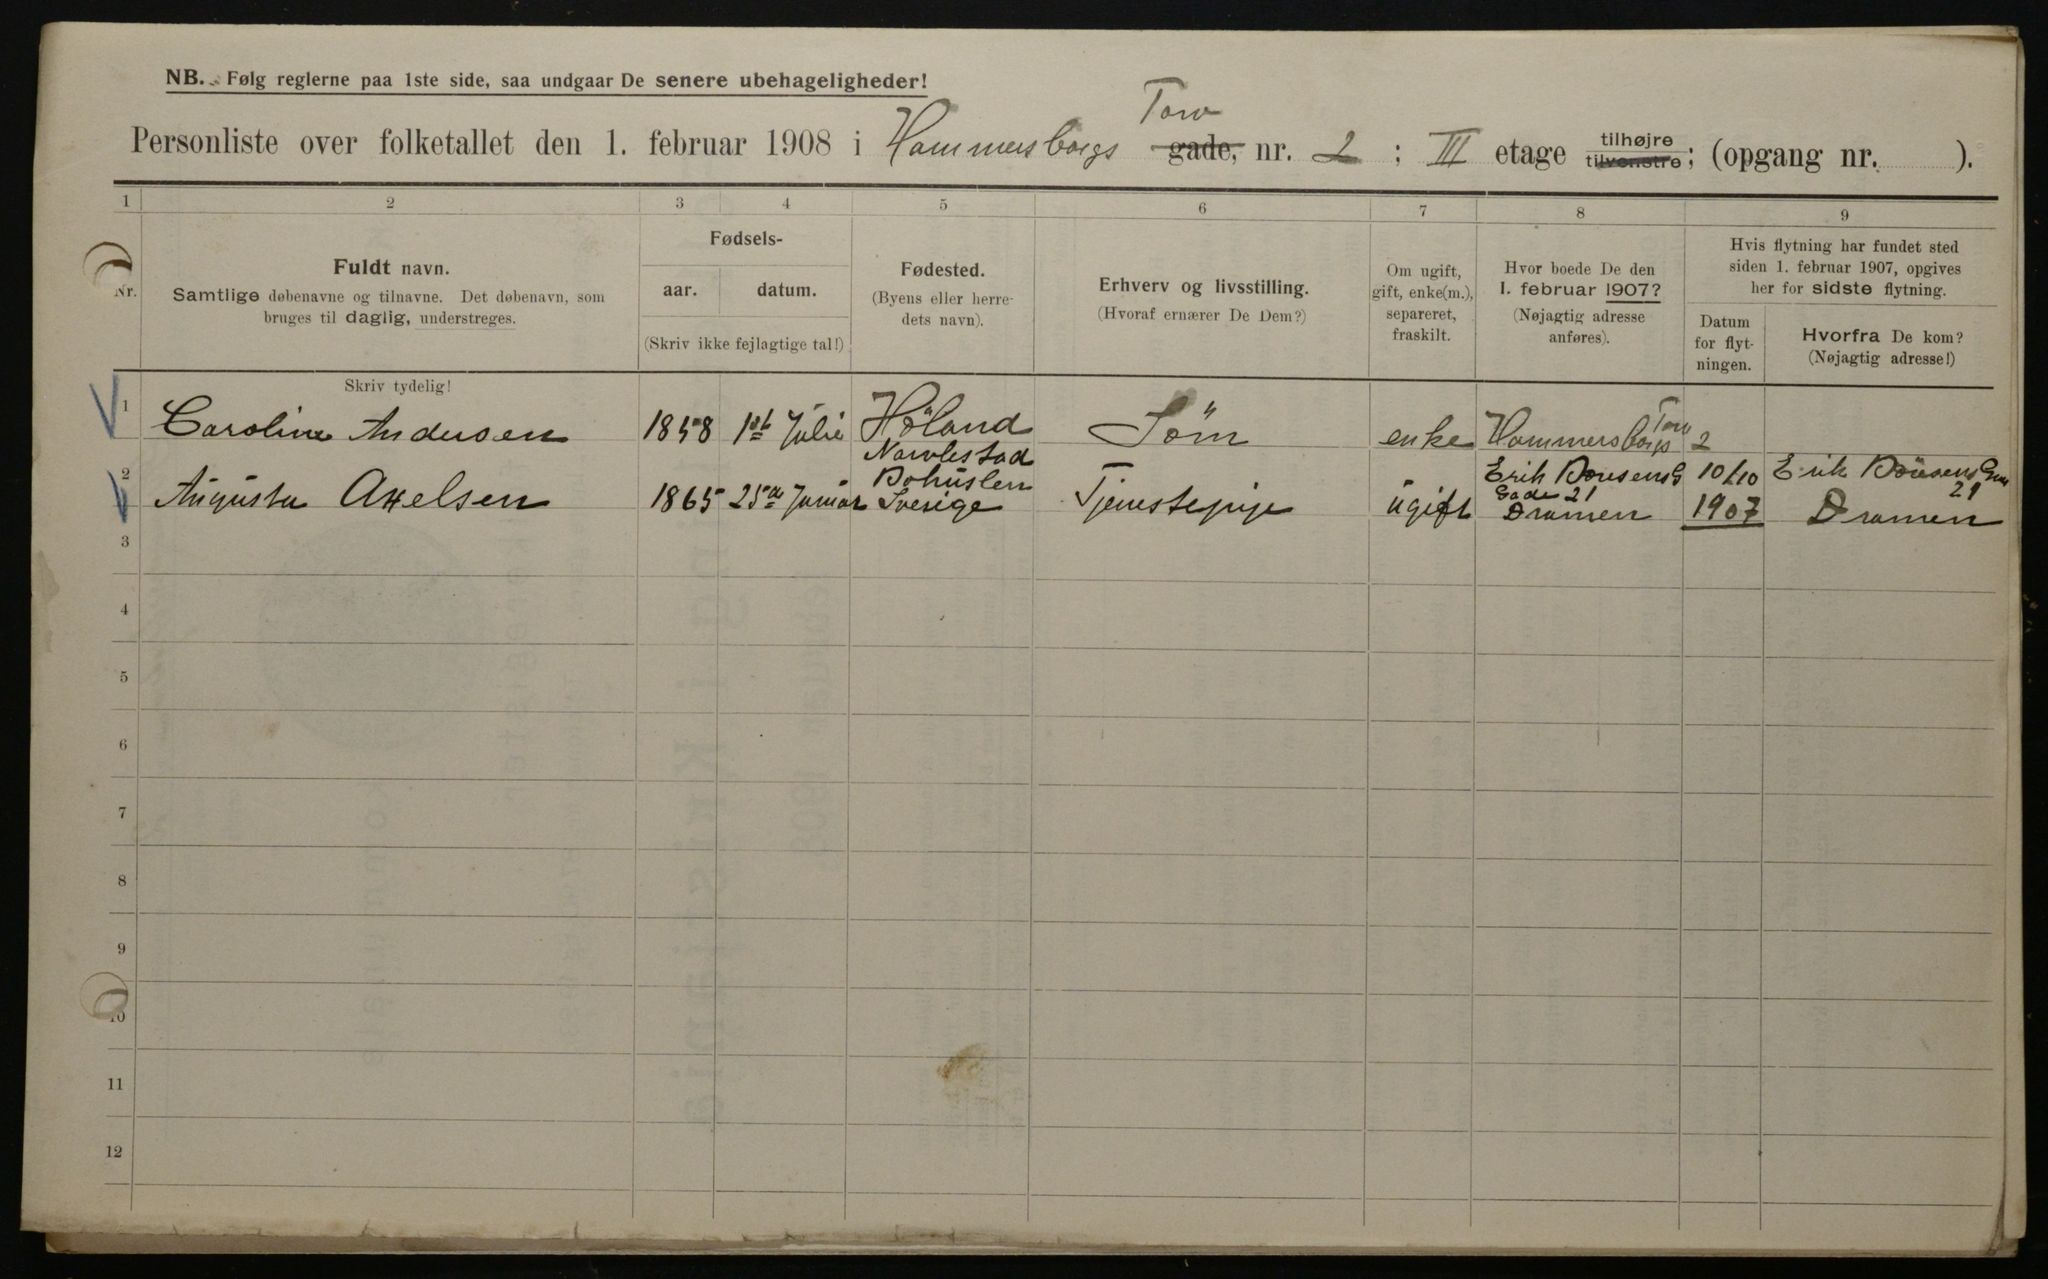 NB. Følg reglerne paa 1ste side, saa undgaar De senere ubehageligheder!
Torv
Personliste over folketallet den 1. februar 1908 i Hammersborgs gade, nr. 2 ; III etage tilhøjre tilvenstre ; (opgang nr. ).
1 2 3 4 5 6 7 8 9
Nr.
Fuldt navn.
Samtlige døbenavne og tilnavne. Det døbenavn, som
bruges til daglig, understreges.
Fødsels-
aar. datum.
(Skriv ikke fejlagtige tal!)
Fødested.
(Byens eller herre-
dets navn).
Erhverv og livsstilling.
(Hvoraf ernærer De Dem?)
Om ugift,
gift, enke(m.),
separeret,
fraskilt.
Hvor boede De den
1. februar 1907?
(Nøjagtig adresse
anføres).
Hvis flytning har fundet sted
siden 1. februar 1907, opgives
her for sidste flytning.
Datum
for flyt-
ningen.
Hvorfra De kom?
(Nøjagtig adresse!)
Skriv tydelig!
1 Caroline Andersen 1858 1st Julie Høland Söm enke Hammersborgs Torv 2
2 Augusta Axelsen 1865 25de Januar Navlestad Bohuslen Sverige Tjenestepige ugift Erik Börresens G Gade 21 Dramen 10/10 1907 Erik Börresens 21 Dramen
3
4
5
6
7
8
9
10
11
12